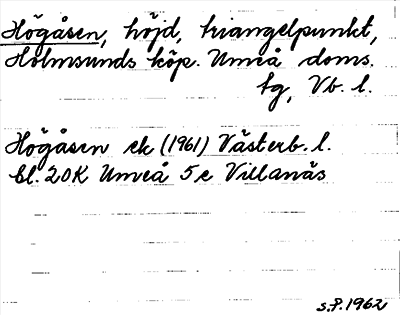 Högåsen, höjd, triangelpunkt,
Holmsunds köp. Umeå doms.
tg, Vb. l.
Högåsen ek (1961) Västerb. l.
bl. 20K Umeå 5e Villanäs
s.P. 1962